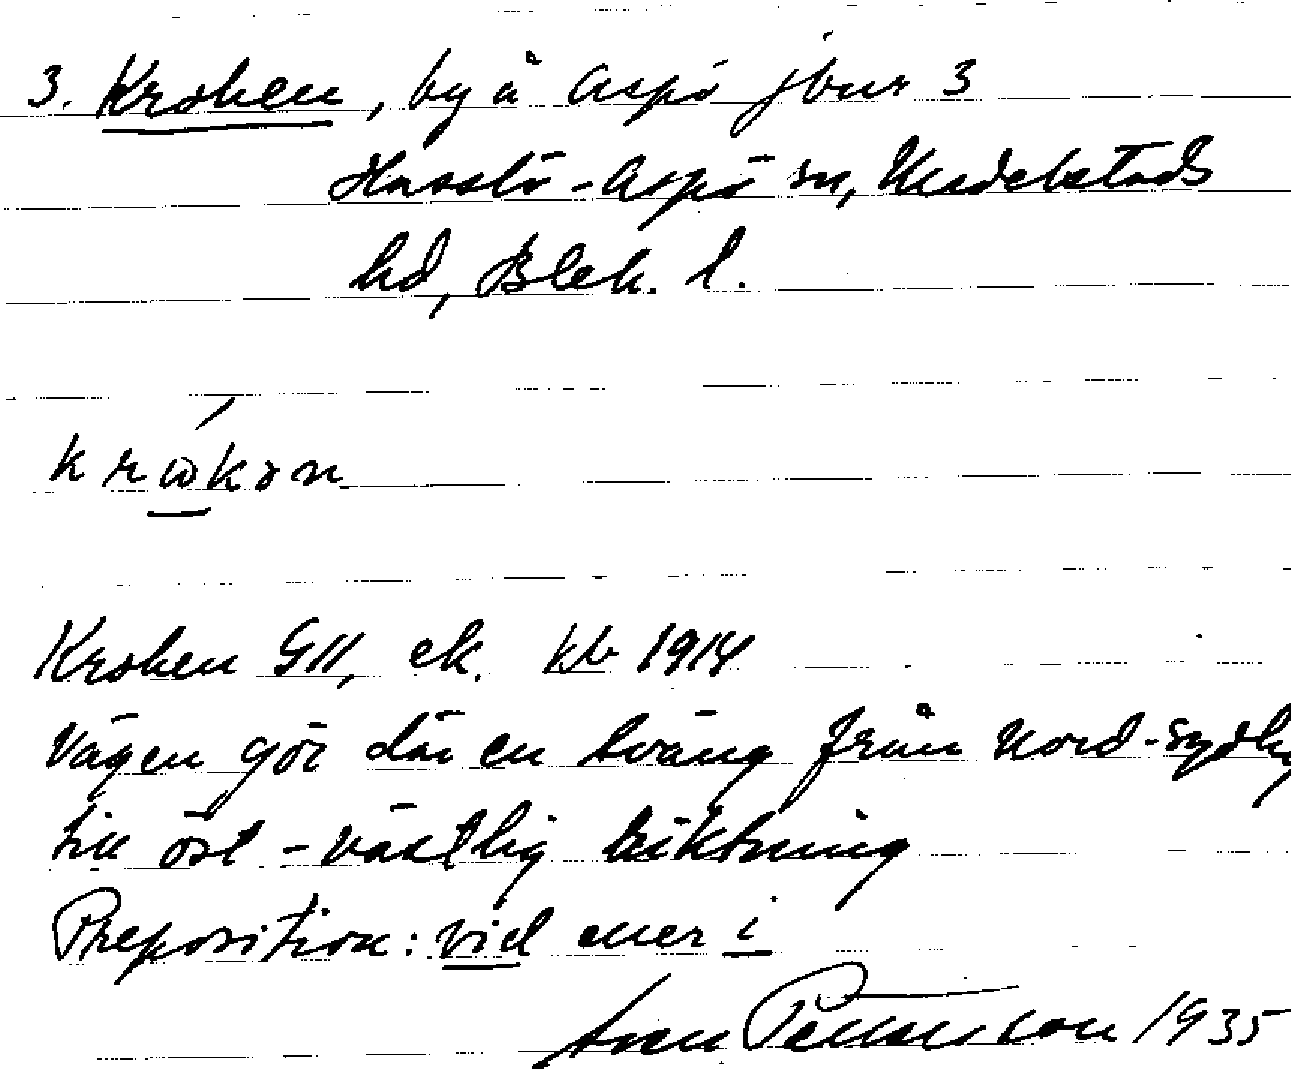 3. Kroken, by å Aspö jbnr 3
Hasslö-Aspö sn, Medelstads
hd, Blek. l.
krωkən
Kroken GII, ek. kb 1914
Vägen gör där en sväng från nord-sydlig
till öst-västlig riktning
Preposition: vid eller i
Sven Pettersson 1935